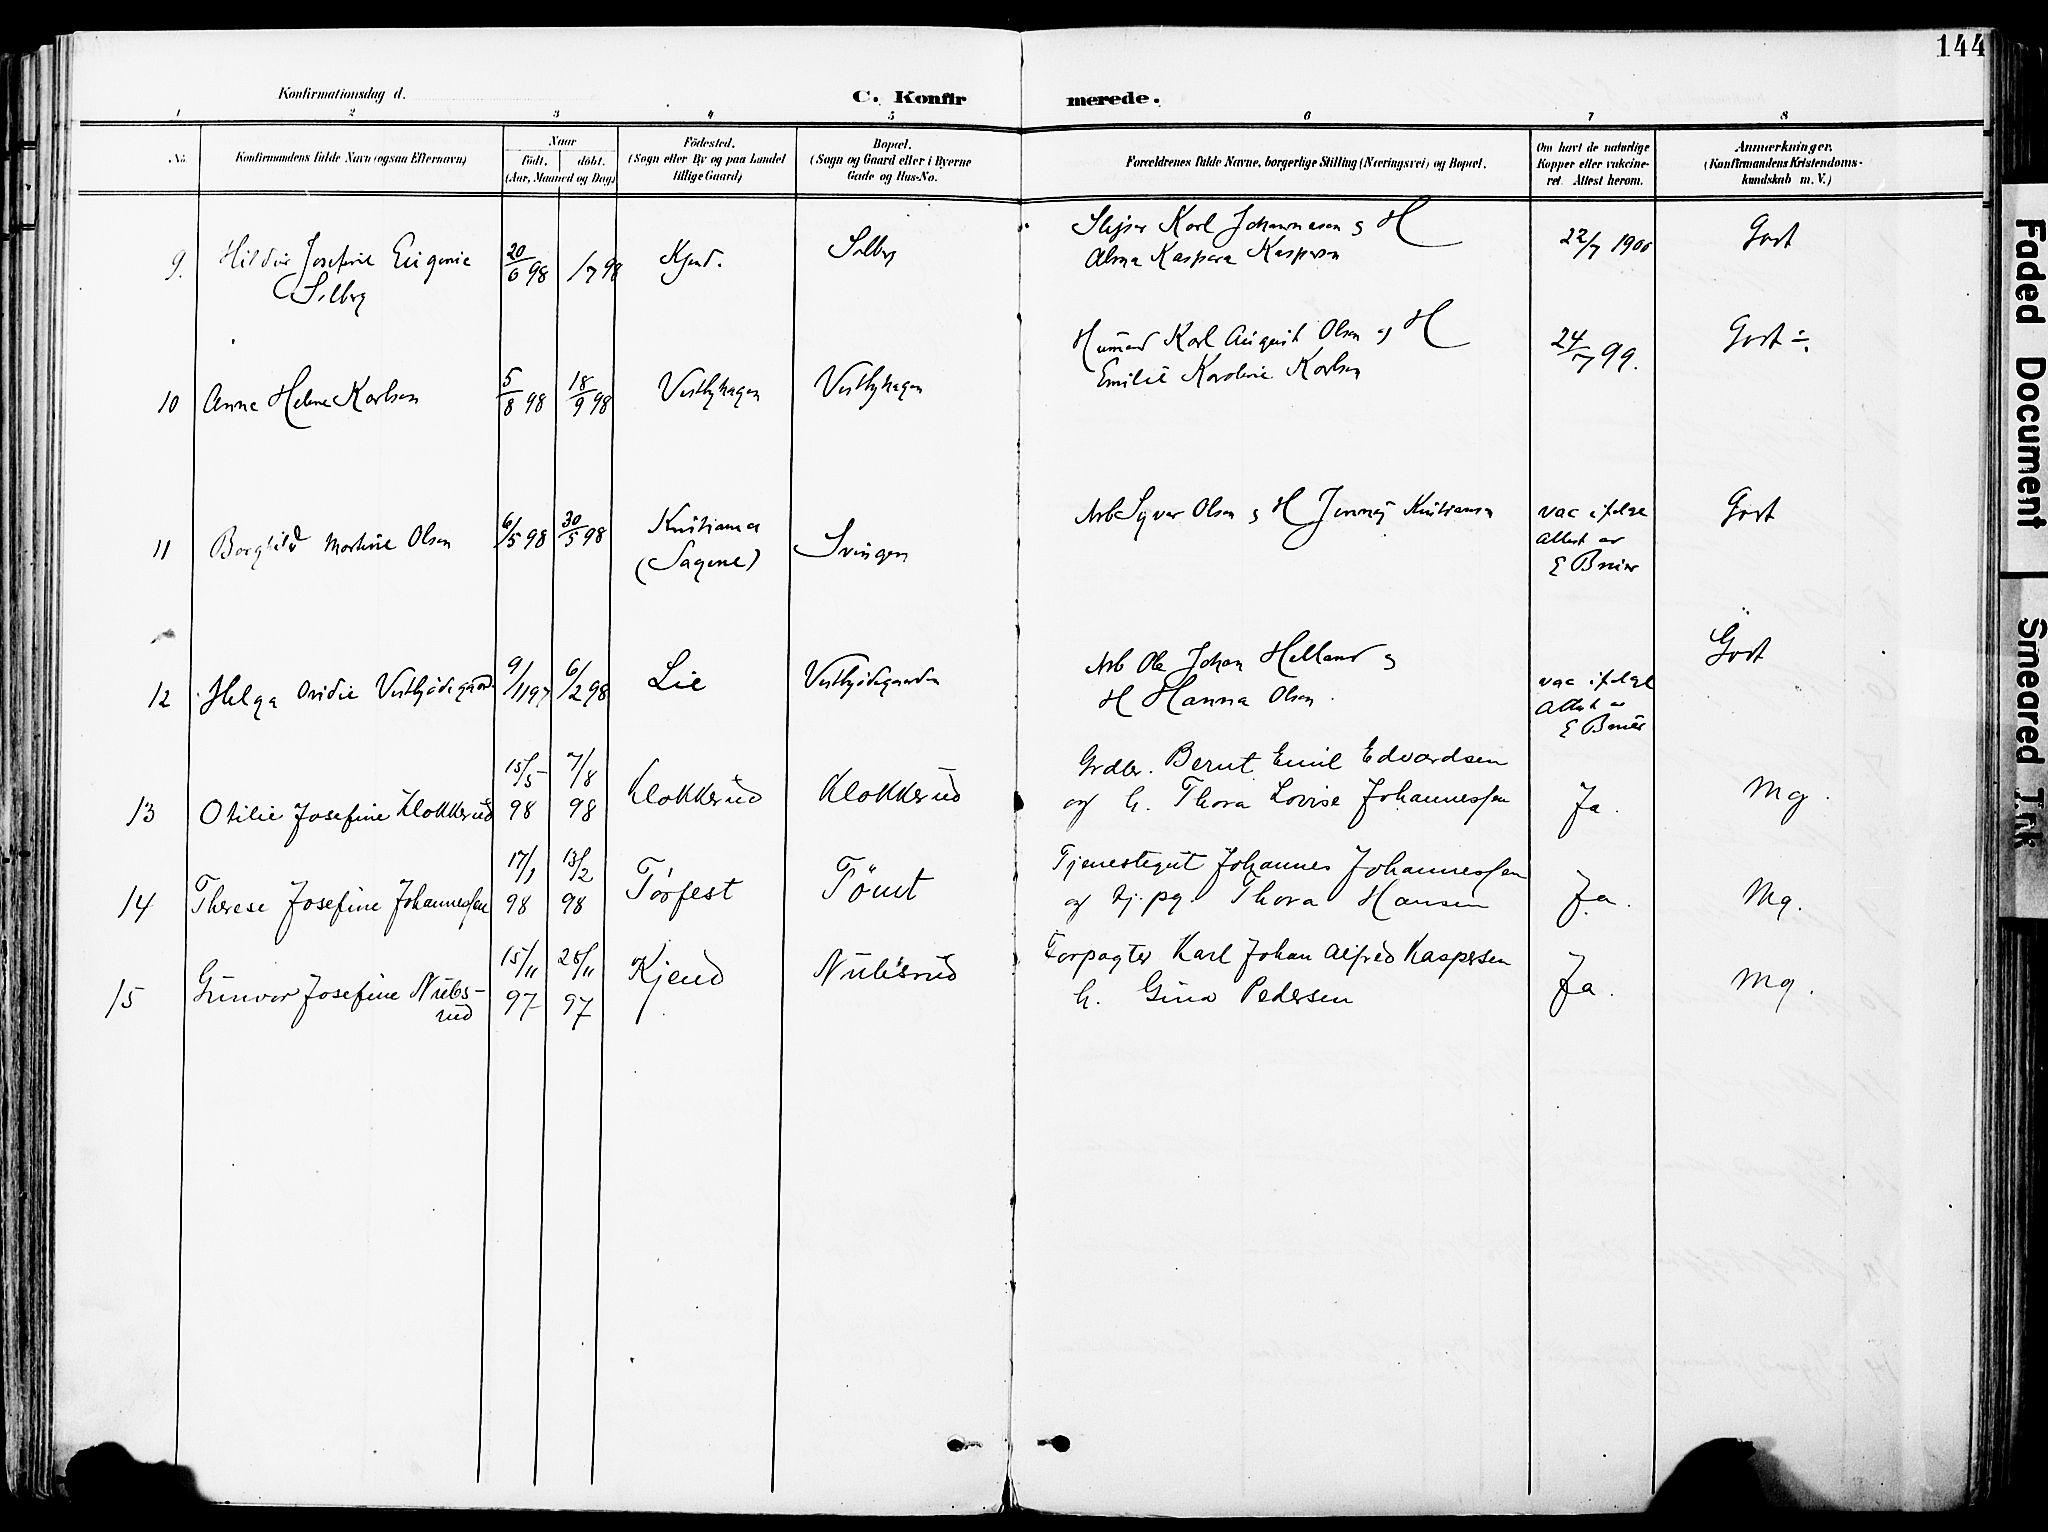 144
Konfirmationsdag d.
C. Konfirmerede.
1 2 3 4 5 6 7 8
No. Konfirmandens fulde Navn (ogsaa Efternavn) Naar født. døbt. (Aar, Maaned og Dag) Fødested. (Sogn eller By og paa Landet tillige Gaard) Bopæl. (Sogn og Gaard eller i Byerne Gade og Hus-No. Forældrenes fulde Navne, borgerlige Stilling (Næringsvei) og Bopæl. Om havt de naturlige Kopper eller vakcineret. Attest herom. Anmærkninger. (Konfirmandens Kristendomskundskab m. V.)
9. Josefine Eugenie 20/6 98 1/7 98 Kjend. Solberg Karl Johannesen og H 22/7 1900 Godt
Solberg Alma Kaspara Kaspersen
10 Anna Helene Karlsen 5/8 98 18/9 98 Vestbyhagen Vestbyhagen Karl August Olsen og H 24/7 99. Godt ÷.
Emilie Karoline Karlsen
11 Borghild Martine Olsen 6/5 98 30/5 98 Kristiania Svingen Arb Syver Olsen og H Jenny Kristiansen vac ifølge Godt
(Sagene) Attest av
E Breier
12 Helga Ovidie Vestbyødegaard 9/11 97 6/2 98 Lie Vestbyødegaarden Arb Ole Johan Helland og vac ifølge Godt
H Hanna Olsen. Attest av
E Breier
13 Otilie Josefine Klokkerud 15/5 98 7/8 98 Klokkerud Klokkerud Grdbr. Bernt Emil Edvardsen Ja. Mg.
og h. Thora Lovise Johannessen
14 Therese Josefine Johannessen 17/1 98 13/2 98 Torfest Tømt Tjenestegut Johannes Johannessen Ja. Mg.
og tj.pg. Thora Hansen
15 Gunvor Josefine Nubs- 15/11 97 28/11 97 Kjend Nubsrud Forpagter Karl Johan Alfred Kaspersen Ja. Mg.
rud h. Gina Pedersen
Faded Document
Smeared Ink